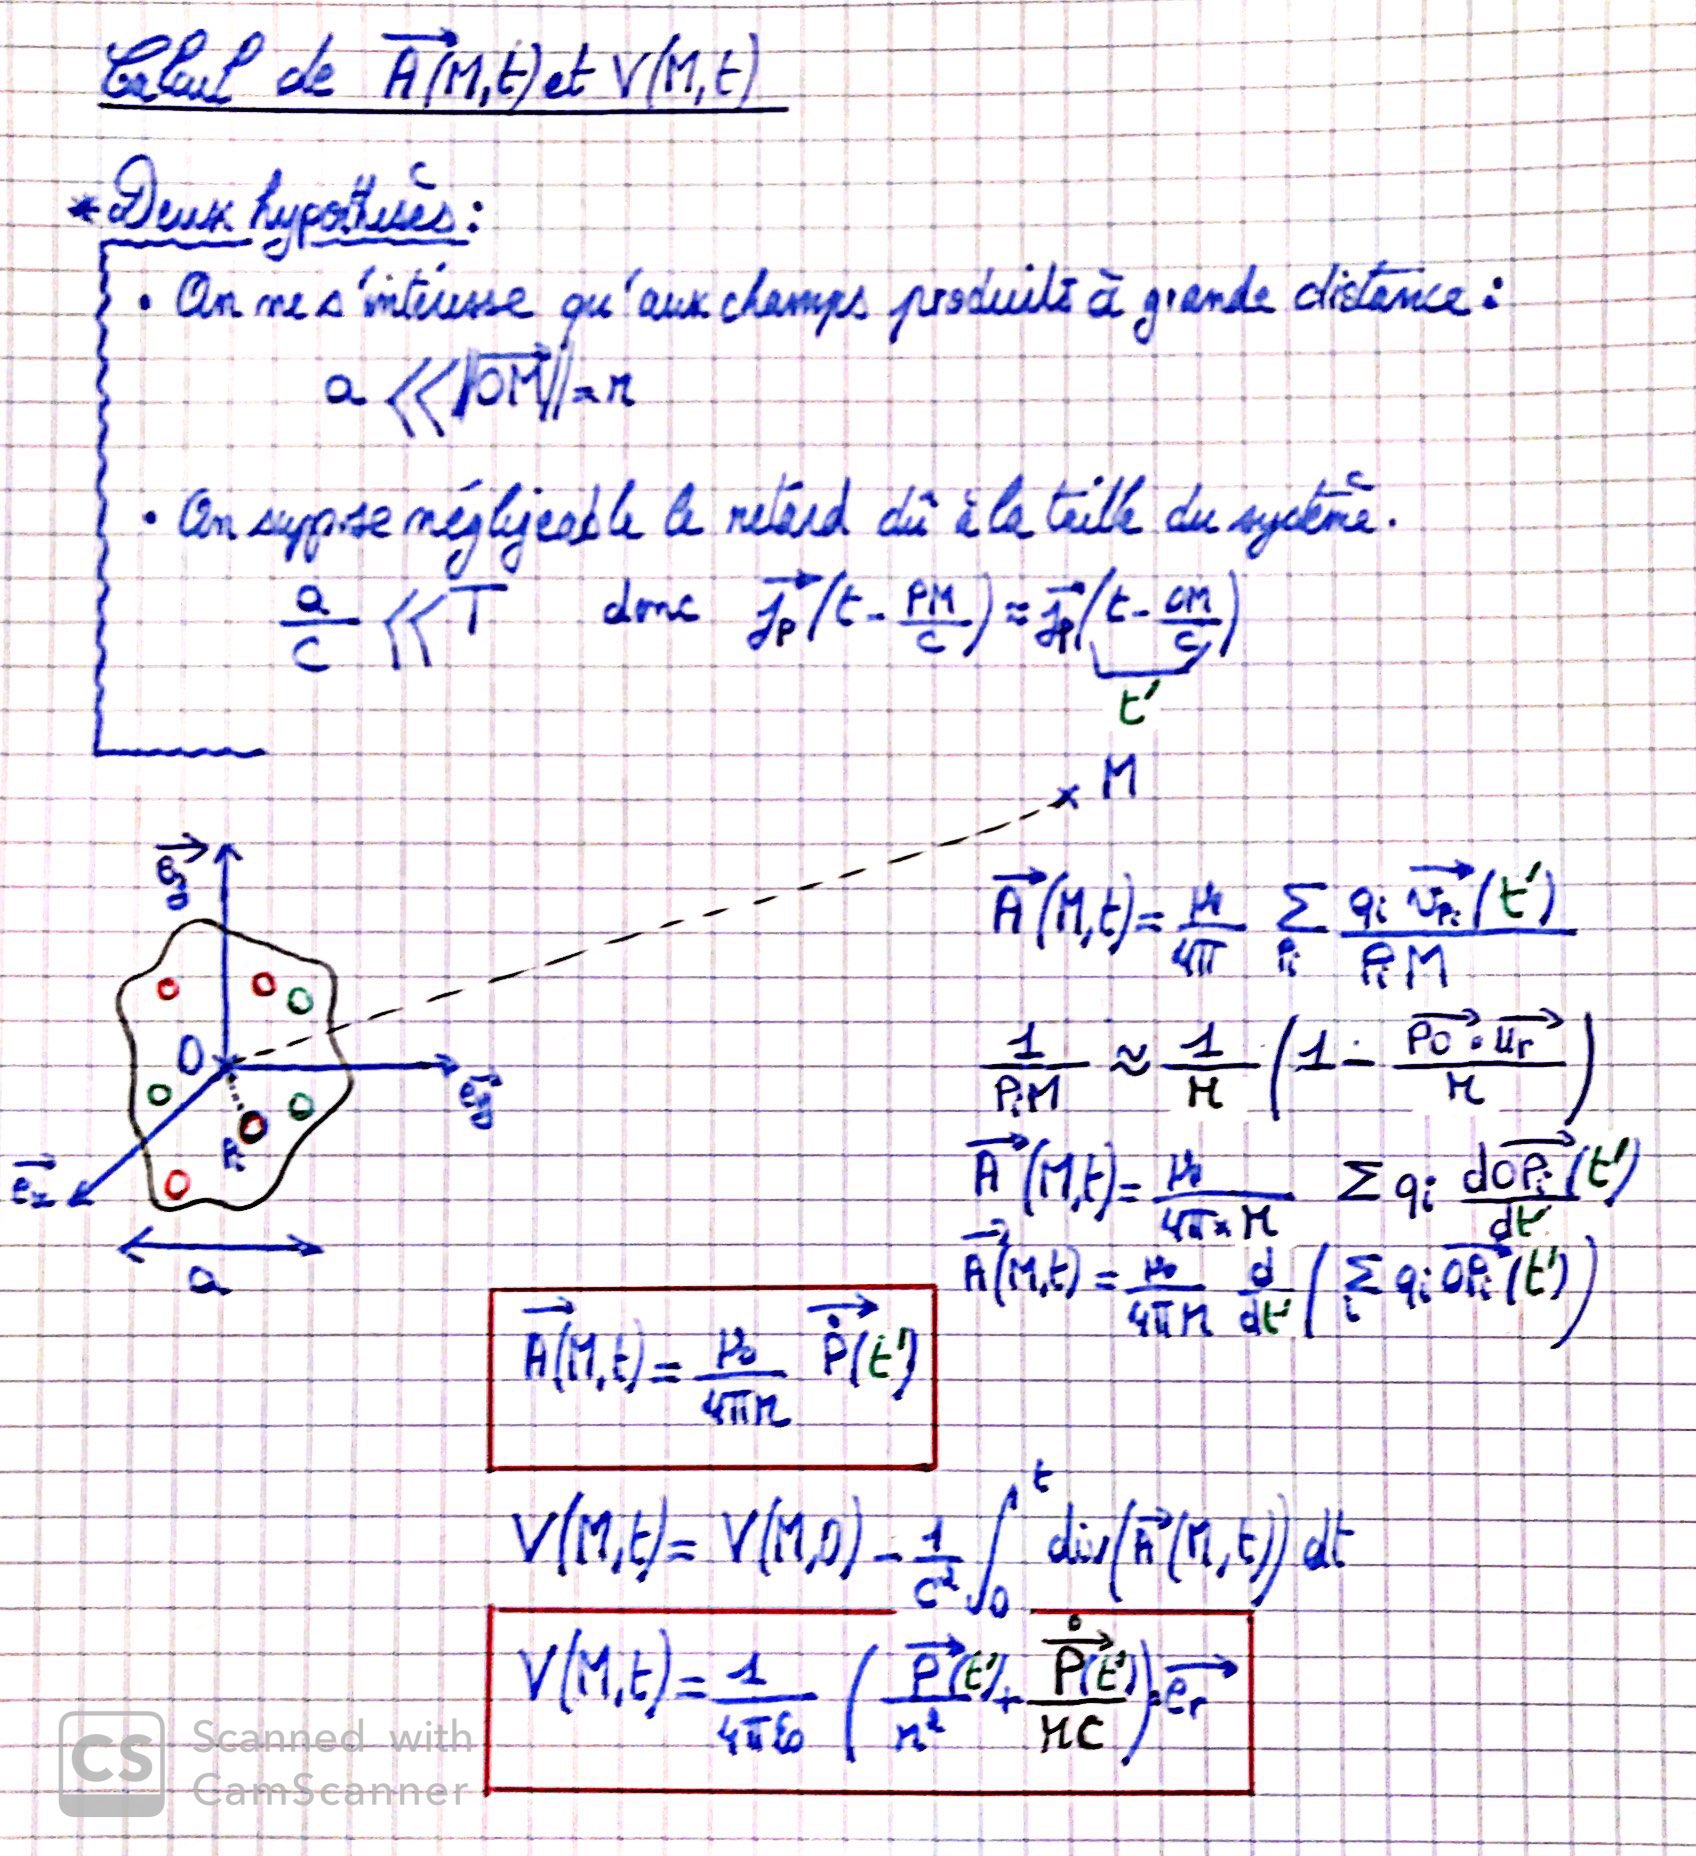 Calcul de \vec{A}(M,t) et V(M,t)
* Deux hypothèses :
• On ne s'intéresse qu'aux champs produits à grande distance :
a << ||\vec{OM}|| = r
• On suppose négligeable le retard dû à la taille du système.
\frac{a}{c} << T donc \vec{j_P}(t - \frac{PM}{c}) ≈ \vec{j_P}(t - \frac{OM}{c})
t'
M
\vec{e_z}
O
\vec{e_y}
P_i
\vec{e_x}
a
\vec{A}(M,t) = \frac{μ_0}{4π} \sum_{P_i} \frac{q_i \vec{v_{P_i}}(t')}{P_iM}
\frac{1}{P_iM} ≈ \frac{1}{r} (1 - \frac{\vec{PO}.\vec{u_r}}{r})
\vec{A}(M,t) = \frac{μ_0}{4π × r} Σ q_i \frac{d\vec{OP_i}(t')}{dt'}
\vec{A}(M,t) = \frac{μ_0}{4πr} \frac{d}{dt'} (\sum_i q_i \vec{OP_i}(t'))
\vec{A}(M,t) = \frac{μ_0}{4πr} \dot{\vec{P}}(t')
V(M,t) = V(M,0) - \frac{1}{c^2} \int_0^t div(\vec{A}(M,t)) dt
V(M,t) = \frac{1}{4πε_0} (\frac{\vec{P}(t')}{r^2} + \frac{\dot{\vec{P}}(t')}{rc}) . \vec{e_r}
CS Scanned with
CamScanner